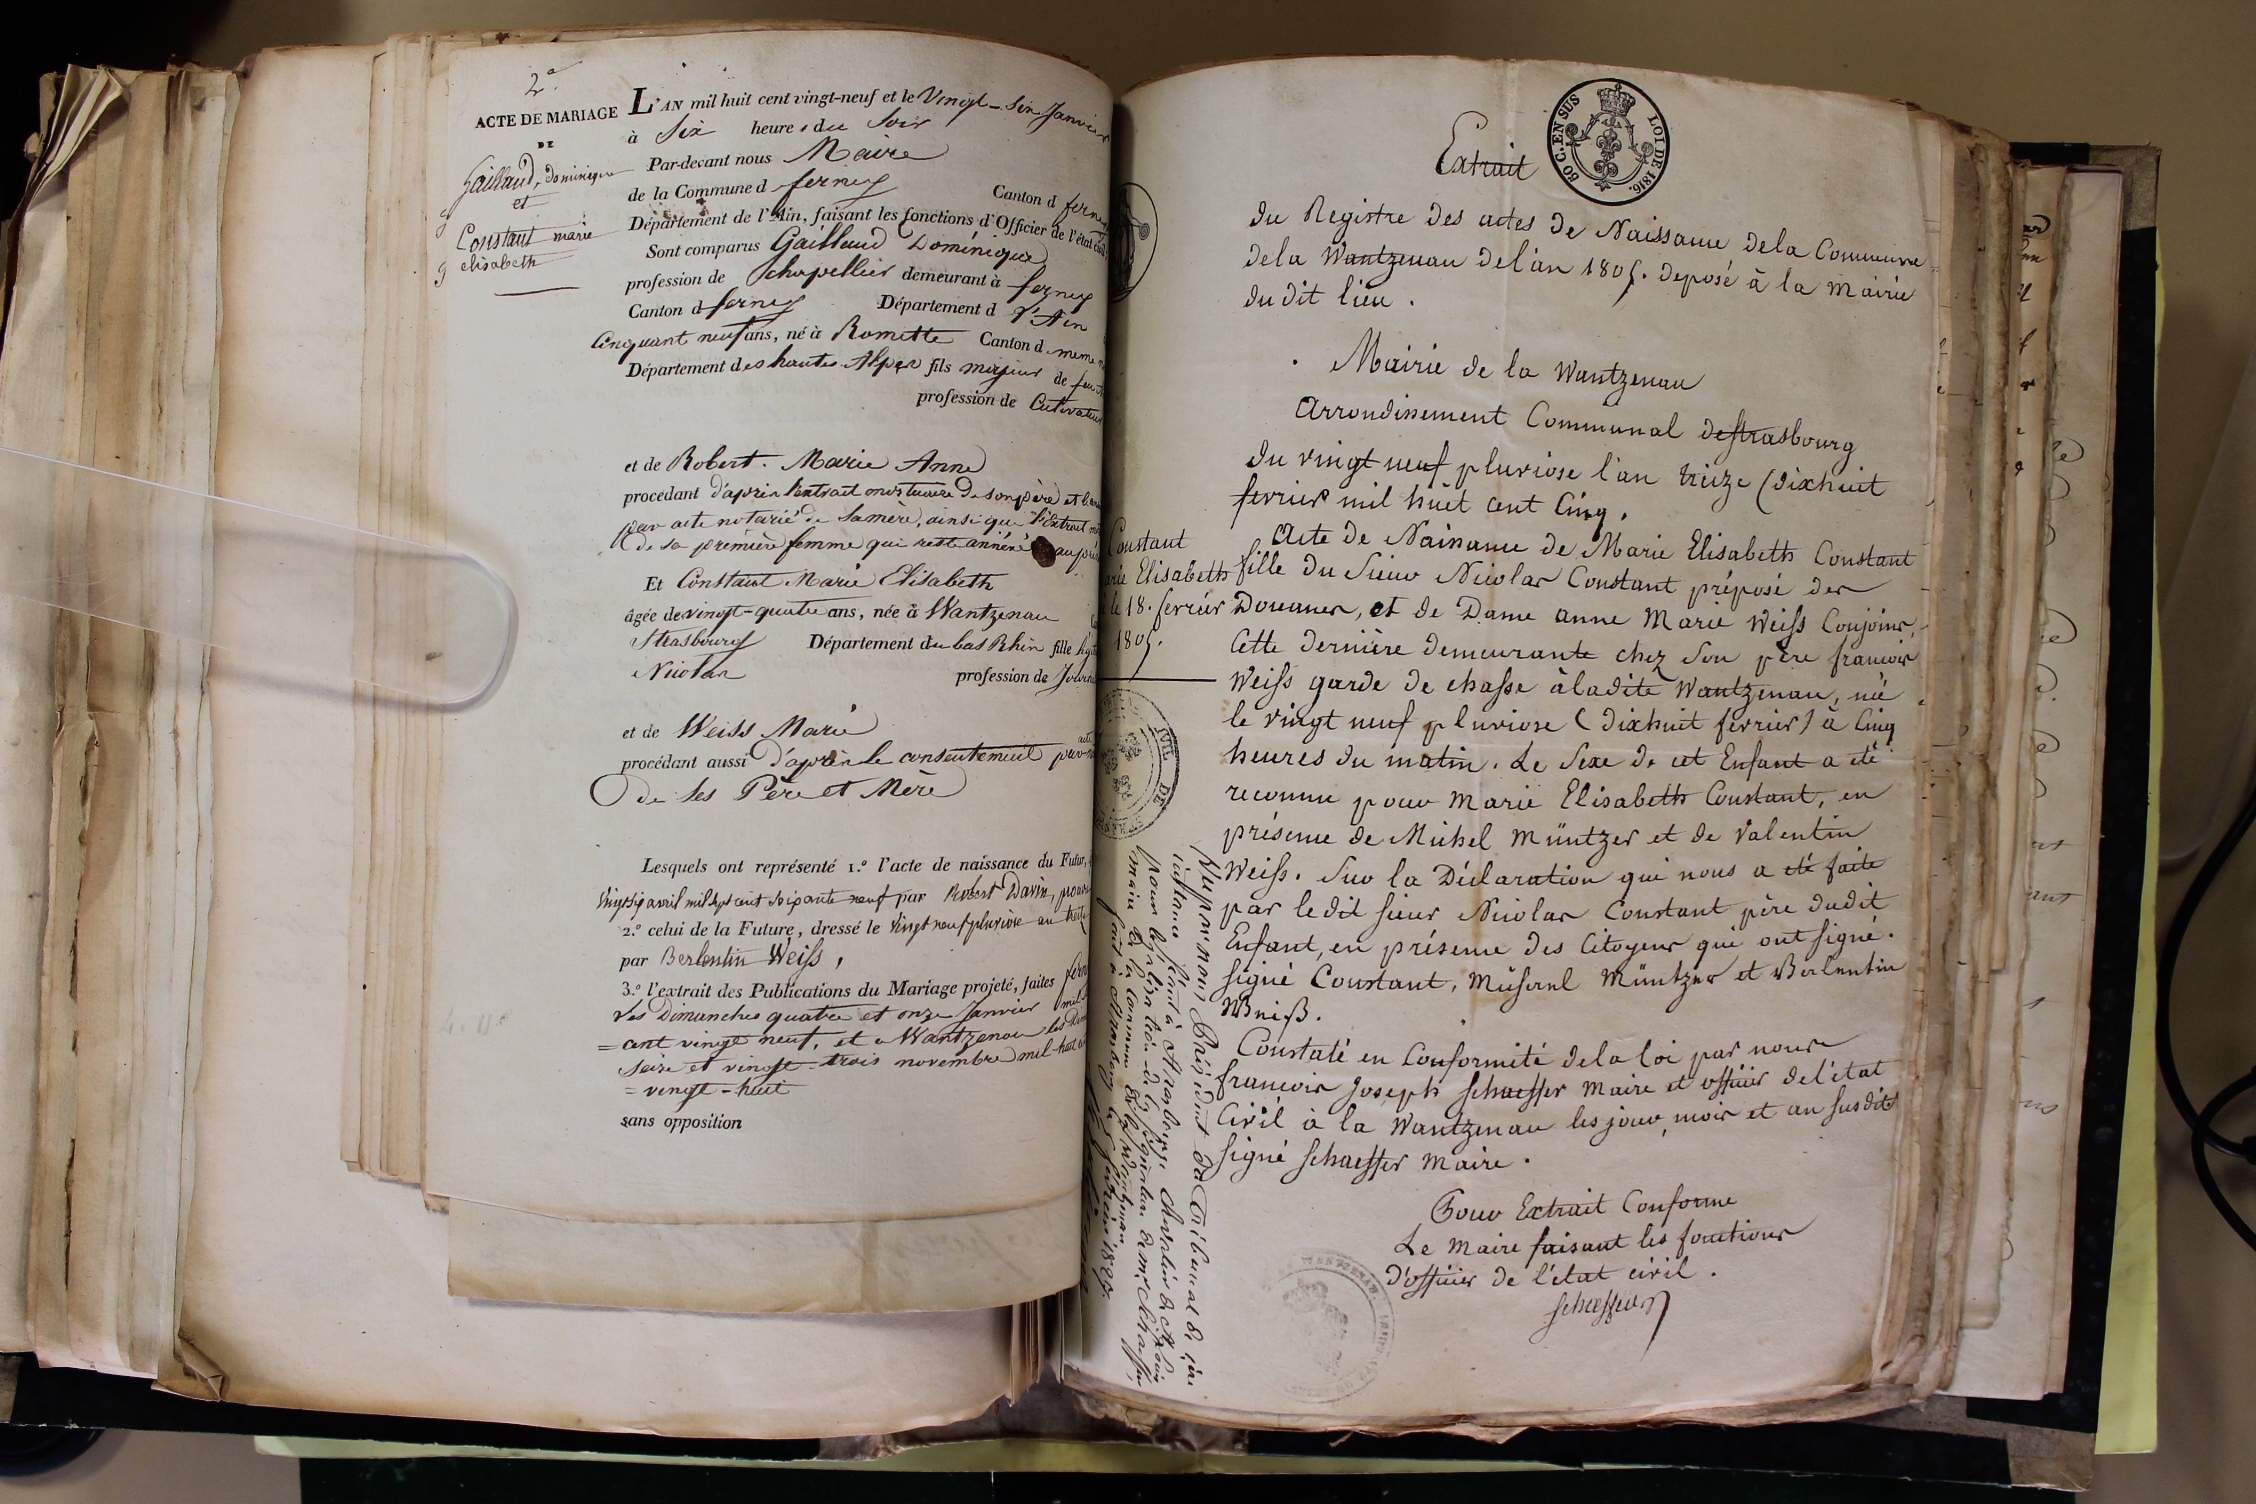 2.º
ACTE DE MARIAGE
DE
Gaillaud, dominique
et
Constant marie
elisabeth
L'AN mil huit cent vingt-neuf et le Vingt-six Janvier
à Six heures du Soir
Par-devant nous Maire
de la Commune d ferney Canton d ferney
Département de l'Ain, faisant les fonctions d'Officier de l'état civil
Sont comparus Gaillaud Dominique
profession de Chapellier demeurant à ferney
Canton d ferney Département d l'Ain
Cinquant neuf ans, né à Romette Canton d meme
Département des hautes Alpes fils majeur de
profession de Cultivateur
et de Robert Marie Anne
procédant d'après l'extrait mortuaire de son père et
par acte notarié de sa mère, ainsi que l'Extrait
de sa première femme qui reste annéxé
Et Constant Marie Elisabeth
âgée de vingt-quatre ans, née à Wantzenau
Strasbourg Département du bas Rhin fille
Nicolas profession de
et de Weiss Marie
procédant aussi d'après le consentement par acte
de ses Père et Mère
Lesquels ont représenté 1.º l'acte de naissance du Futur,
Vingt six avril mil sept cent soixante neuf par Robert Davin,
2.º celui de la Future, dressé le vingt neuf pluviose an treize
par Berlentin Weiss,
3.º l'extrait des Publications du Mariage projeté, faites
Les Dimanches quatre et onze Janvier mil
= cent vingt neuf, et a Wantzenau les
seize et vingt-trois novembre mil-huit
= vingt-huit
sans opposition
Extrait
80 C. EN SUS LOI DE 1816.
du Registre des actes de Naissance dela Commune
dela Wantzenau del'an 1805. deposé à la Mairie
du dit lieu.
Mairie de la Wantzenau
Arrondissement Communal de Strasbourg
du vingt neuf pluviose l'an treize (dixhuit
fevrier mil huit cent Cinq.
Constant
Elisabeth
le 18. fevrier
1805.
Acte de Naissance de Marie Elisabeth Constant
fille du Sieur Nicolas Constant préposé des
Douanes, et de Dame anne Marie Weiss Conjoins,
Cette dernière demeurante chez Son père francois
Weiss garde de chasse à ladite Wantzenau, née
le vingt neuf pluviose (dixhuit fevrier) à Cinq
heures du matin. Le Sexe de cet Enfant a été
reconnu pour Marie Elisabeth Constant, en
présence de Michel Müntzer et de Valentin
Weiss. Sur la Déclaration qui nous a été faite
par ledit sieur Nicolas Constant père dudit
Enfant, en présence des Citoyens qui ont signé.
signé Constant, Müntzer et Berlentin
Weiß.
Constaté en Conformité dela loi par nous
francois Joseph Schaeffer Maire et officier del'état
Civil à la Wantzenau les jour, mois et an susdits
signé Schaeffer Maire.
Pour Extrait Conforme
Le Maire faisant les fonctions
d'officier de l'état civil.
Schaeffer
Vu par nous Président du Tribunal de
instance séant à Strasbourg, Chevalier de
pour légalisation de la signature de Mr. Schaeffer,
maire de la Commune de la Wantzenau
fait à Strasbourg le